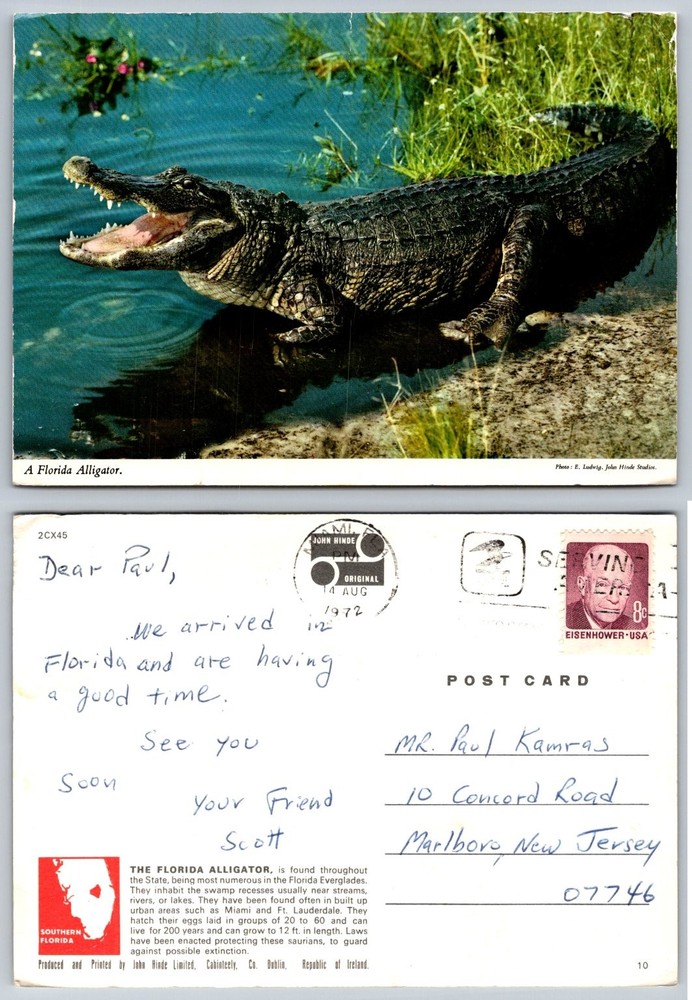 A Florida Alligator.
Photo: E. Ludwig, John Hinde Studios.
2CX45
Dear Paul,
We arrived in
Florida and are having
a good time.
See you
Soon
Your Friend
Scott
MIAMI, FLA
JOHN HINDE
PM
ORIGINAL
14 AUG
1972
SERVING
AMERICA
8c
EISENHOWER·USA
POST CARD
MR. Paul Kamras
10 Concord Road
Marlboro, New Jersey
07746
SOUTHERN
FLORIDA
THE FLORIDA ALLIGATOR, is found throughout
the State, being most numerous in the Florida Everglades.
They inhabit the swamp recesses usually near streams,
rivers, or lakes. They have been found often in built up
urban areas such as Miami and Ft. Lauderdale. They
hatch their eggs laid in groups of 20 to 60 and can
live for 200 years and can grow to 12 ft. in length. Laws
have been enacted protecting these saurians, to guard
against possible extinction.
Produced and Printed by John Hinde Limited, Cabinteely, Co. Dublin, Republic of Ireland.
10